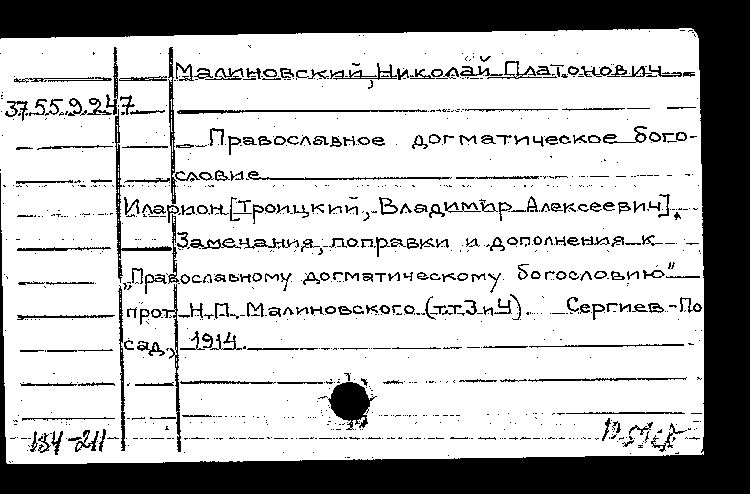 Малиновский, Николай Платонович
37.55.9.247
Православное догматическое бого-
словие
Иларион [Троицкий, Владимир Алексеевич].
Замечания, поправки и дополнения к
„Православному догматическому богословию"
прот. Н.П. Малиновского (т.т. 3 и 4). Сергиев-По
сад, 1914.
184-211